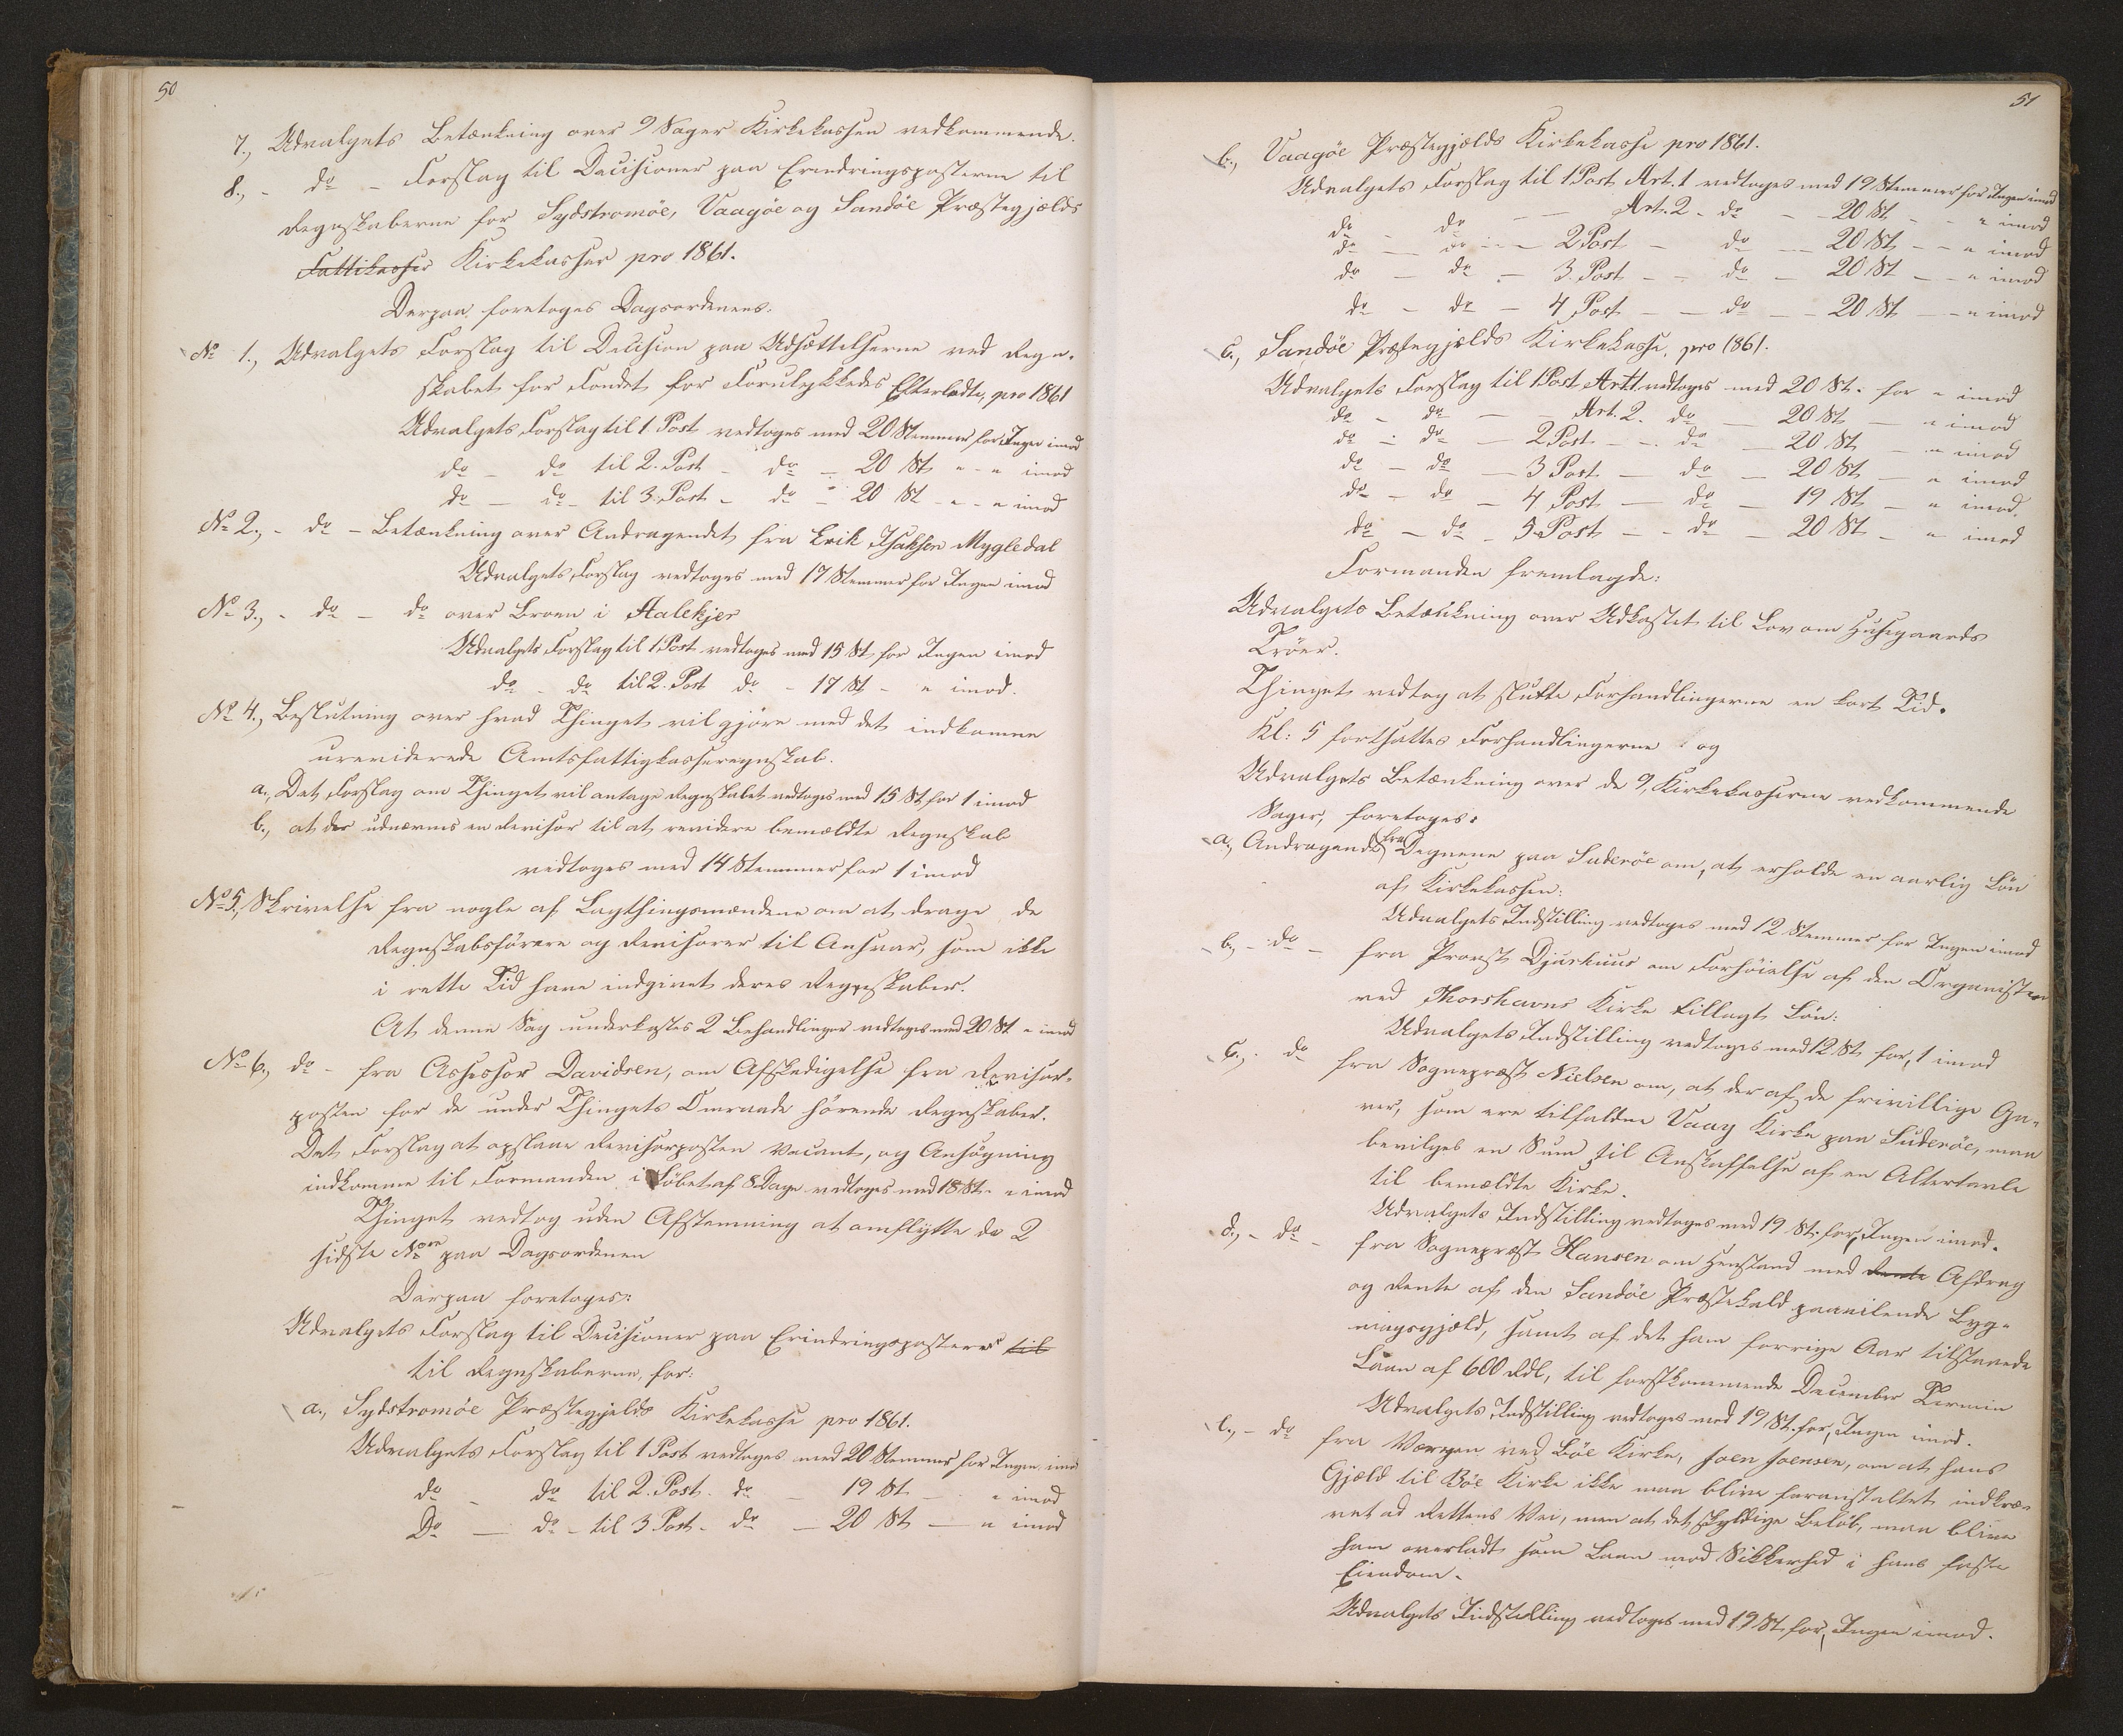 50
7., Udvalgets Betænkning over 9 Sager Kirkekassen vedkommende.
8., - do - Forslag til Decisioner paa Erindringsposterne til
Regnskaberne for Sydstromöe, Vaagöe og Sandöe Præstegjælds
Fattikasser Kirkekasser pro 1861.
Derpaa foretoges Dagsordenens.
No 1., Udvalgets Forslag til Decision paa Udsættelserne ved Regn-
skabet for Fondet for Forulykkedes Efterladte, pro 1861
Udvalgets Forslag til 1 Post vedtoges med 20 Stemmer for Ingen imod
do - do til 2. Post - do - 20 St " - " imod
do - do - til 3. Post - do - 20 St - " - " imod
No 2., - do - Betænkning over Andragendet fra Erik Isaksen Mygledal
Udvalgets Forslag vedtoges med 17 Stemmer for Ingen imod
No 3., - do - do over Broen i Aalekjer
Udvalgets Forslag til 1 Post vedtoges med 15 St for Ingen imod
do - do til 2. Post do - 17 St - " imod.
No 4., Beslutning over hvad Thinget vil gjöre med det indkomne
ureviderede Amtsfattigkasseregnskab.
a., Det Forslag om Thinget vil antage Regnskabet vedtoges med 15 St for 1 imod
b., at der udnævnes en Revisor til at revidere bemældte Regnskab
vedtoges med 14 Stemmer for 1 imod
No 5., Skrivelse fra nogle af Lagthingsmændene om at drage de
Regnskabsförere og Revisorer til Ansvar, som ikke
i rette Tid have indgivet deres Regnskaber.
At denne Sag underkastes 2 Behandlinger vedtoges med 20 St " imod
No 6., do - fra Assessor Davidsen, om Afskedigelse fra Revisor-
posten for de under Thingets Omraade hörende Regnskaber.
Det Forslag at opslaae Revisorposten vacant, og Ansögning
indkomme til Formanden i Löbet af 8 Dage vedtoges med 18 St. " imod
Thinget vedtog uden Afstemning at omflytte de 2
sidste Noere paa Dagsordenen
Derpaa foretoges:
Udvalgets Forslag til Decisioner paa Erindringsposterne til
til Regnskaberne, for:
a., Sydstromöe Præstegjelds Kirkekasse pro 1861.
Udvalgets Forslag til 1 Post vedtoges med 20 Stemmer for Ingen imod
do - do til 2. Post. do - 19 St - " imod
Do - do - til 3 Post. do - 20 St - " imod
51
b., Vaagöe Præstegjælds Kirkekasse pro 1861.
Udvalgets Forslag til 1 Post Art. 1 vedtoges med 19 Stemmer for Ingen imod
do - do - - Art. 2 - do - - 20 St - - " imod
do - do - - 2 Post - do - - 20 St - - " imod
do - do - 3. Post - - do - 20 St - - " imod
do - do - 4 Post - - do - - 20 St - - " imod
c., Sandöe Præstegjælds Kirkekasse, pro 1861.
Udvalgets Forslag til 1 Post Art 1 vedtoges med 20 St. for " imod
do - do - - Art. 2. do - 20 St - " imod
do - do - 2 Post - - do - 20 St - " imod
do - do - 3 Post - do - 20 St - " imod
do - do - 4 Post - do - 19 St - " imod.
do - do - 5 Post - - do - 20 St - " imod
Formanden fremlagde:
Udvalgets Betænkning over Udkastet til Lov om Huusgaards
Tröer.
Thinget vedtog at slutte Forhandlingerne en kort Tid.
Kl: 5 fortsattes Forhandlingerne og
Udvalgets Betænkning over de 9, Kirkekasserne vedkommende
Sager, foretoges:
a., Andragende fra Degnene paa Suderöe om, at erholde en aarlig Lön
af Kirkekassen:
Udvalgets Indstilling vedtoges med 12 Stemmer for Ingen imod
b., - do - fra Provst Djurhuus om Forhöielse af den Organisten
ved Thorshavns Kirke tillagt Lön:
Udvalgets Indstilling vedtoges med 12 St for, 1 imod
c., - do fra Sognepræst Nielsen om, at der af de frivillige Ga-
ver, som ere tilfaldne Vaag Kirke paa Suderöe, maa
bevilges en Sum til Anskaffelse af en Altertavle
til bemældte Kirke.
Udvalgets Indstilling vedtoges med 19 St. for, Ingen imod.
d., - do - fra Sognepræst Hansen om Henstand med Rente Afdrag
og Rente af den Sandöe Præstekald paahvilende Byg-
ningsgjæld, samt af det ham forrige Aar tilstaaede
Laan af 600 Rdl, til förstkommende December Termin
Udvalgets Indstilling vedtoges med 19 St. for, Ingen imod.
e., - do fra Værgen ved Böe Kirke, Joen Joensen, om at hans
Gjæld til Böe Kirke ikke maa blive foranstaltet indkræ-
vet ad Rettens Vei, men at det skyldige Belöb, maa blive
ham overladt som Laan mod Sikkerhed i hans faste
Eiendom.
Udvalgets Indstilling vedtoges med 19 St for, Ingen imod.